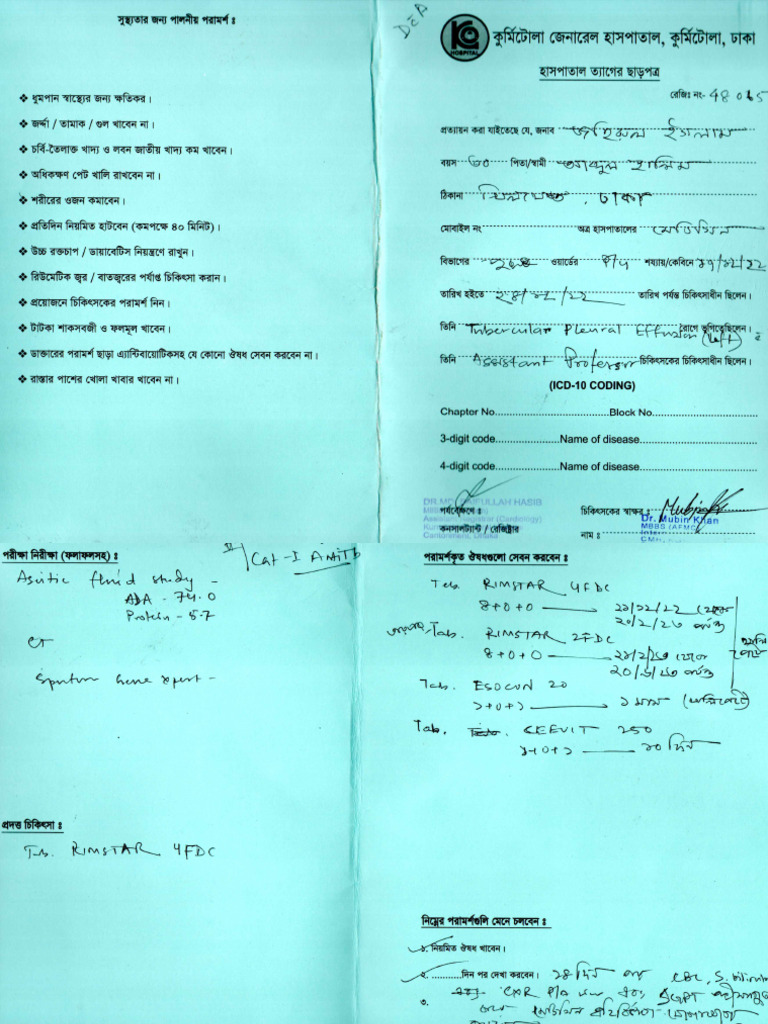 সুস্থ্যতার জন্য পালনীয় পরামর্শ ঃ
❖ ধুমপান স্বাস্থ্যের জন্য ক্ষতিকর।
❖ জর্দ্দা / তামাক / গুল খাবেন না।
❖ চর্বি-তৈলাক্ত খাদ্য ও লবন জাতীয় খাদ্য কম খাবেন।
❖ অধিকক্ষণ পেট খালি রাখবেন না।
❖ শরীরের ওজন কমাবেন।
❖ প্রতিদিন নিয়মিত হাটবেন (কমপক্ষে ৪০ মিনিট)।
❖ উচ্চ রক্তচাপ / ডায়াবেটিস নিয়ন্ত্রণে রাখুন।
❖ রিউমেটিক জ্বর / বাতজ্বরের পর্যাপ্ত চিকিৎসা করান।
❖ প্রয়োজনে চিকিৎসকের পরামর্শ নিন।
❖ টাটকা শাকসবজী ও ফলমূল খাবেন।
❖ ডাক্তারের পরামর্শ ছাড়া এ্যান্টিবায়োটিকসহ যে কোনো ঔষধ সেবন করবেন না।
❖ রাস্তার পাশের খোলা খাবার খাবেন না।
HOSPITAL
কুর্মিটোলা জেনারেল হাসপাতাল, কুর্মিটোলা, ঢাকা
হাসপাতাল ত্যাগের ছাড়পত্র
রেজিঃ নং- 48065
প্রত্যায়ন করা যাইতেছে যে, জনাব জহিরুল ইসলাম
বয়স ৬০ পিতা/স্বামী আব্দুল হালিম
ঠিকানা খিলক্ষেত, ঢাকা
মোবাইল নং অত্র হাসপাতালের মেডিসিন
বিভাগের পুরুষ ওয়ার্ডের শয্যায়/কেবিনে ১৭/১২/২২
তারিখ হইতে ২৪/১২/২২ তারিখ পর্যন্ত চিকিৎসাধীন ছিলেন।
তিনি Tubercular Pleural Effusion (Left) রোগে ভুগিতেছিলেন।
তিনি Assistant Professor চিকিৎসকের চিকিৎসাধীন ছিলেন।
(ICD-10 CODING)
Chapter No. Block No.
3-digit code Name of disease
4-digit code Name of disease
DR.MD. SAIFULLAH HASIB
Assistant Registrar (Cardiology)
Cantonment, Dhaka
পর্যবেক্ষণে ঃ
কনসালট্যান্ট / রেজিষ্ট্রার
চিকিৎসকের স্বাক্ষর ঃ
Dr. Mubin Khan
MBBS (AFMC)
নাম ঃ
পরীক্ষা নিরীক্ষা (ফলাফলসহ) ঃ
Cat-I Anti TB
Ascitic fluid study -
ADA - 74.0
Protein - 5.7
Sputum Gene Xpert -
প্রদত্ত চিকিৎসা ঃ
Tab. RIMSTAR 4FDC
পরামর্শকৃত ঔষধগুলো সেবন করবেন ঃ
Tab. RIMSTAR 4FDC
4+0+0 ২১/১২/২২ থেকে
২০/২/২৩ পর্যন্ত
Tab. RIMSTAR 2FDC
4+0+0 ২১/২/২৩ থেকে
২০/৬/২৩ পর্যন্ত
Tab. ESOCON 20
১+০+১ ১ মাস
Tab. CEEVIT 250
১+০+১ ১০ দিন
নিম্নের পরামর্শগুলি মেনে চলবেন ঃ
১. নিয়মিত ঔষধ খাবেন।
২. দিন পর দেখা করবেন। ১৪ দিন পর CBC, S. bilirubin
৩. CXR P/A view এবং SGPT